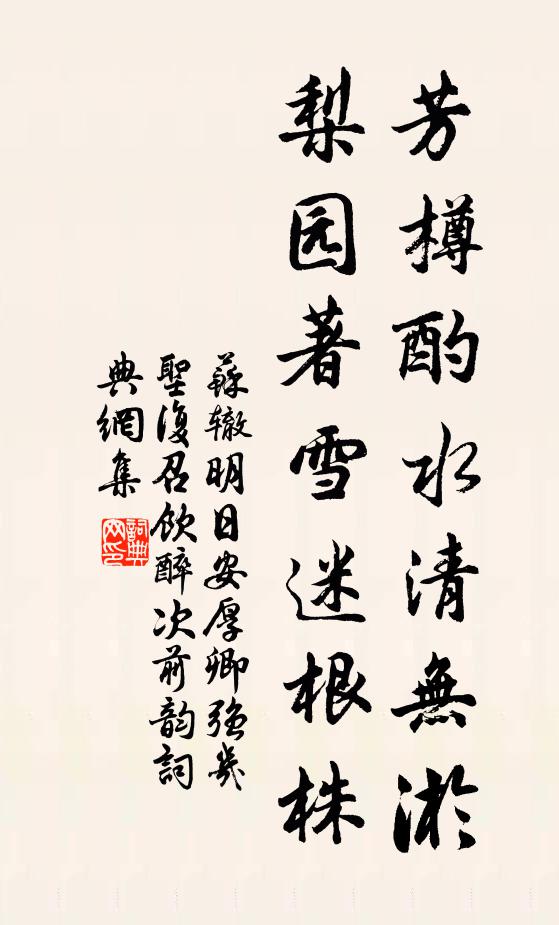 芳樽酌水清無淤
梨园著雪迷根株
蘇辙明日安厚卿強幾
聖復召飲醉次前韵詞
典網集
詞典网印